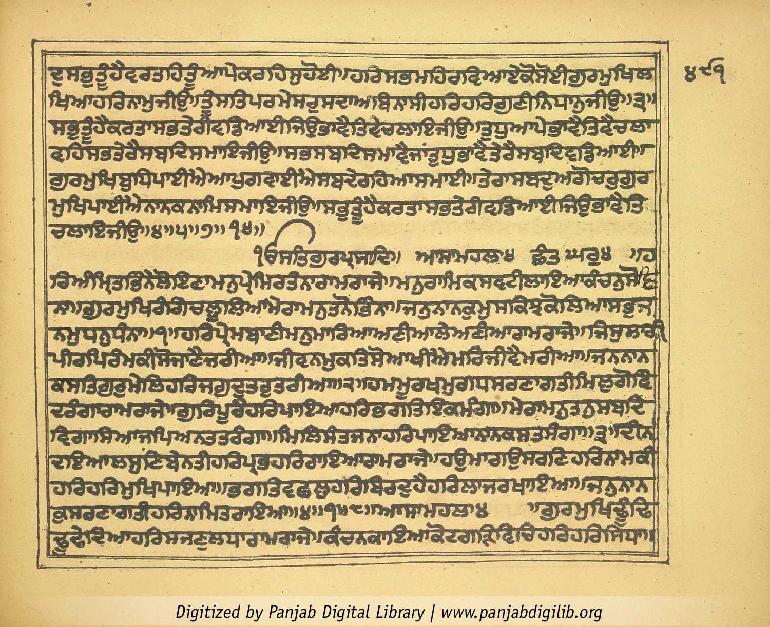 ਦੁਸਭੁਤੂੰਹੈਵਰਤਾਹਿਤੂੰਆਪੇਕਰਹਿਸੁਹੋਈ॥ਹਰਿਸਭਮਹਿਰਵਿਆਏਕੋਸੋਈਗੁਰਮੁਖਿਲ
ਖਿਆਹਰਿਨਾਮੁਜੀਉ॥ਤੂੰਸਤਿਪਰਮੇਸਰੁਸਦਾਅਬਿਨਾਸੀਹਰਿਹਰਿਗੁਣੀਨਿਧਾਨੁਜੀਉ॥੩॥
ਸਭੁਤੂੰਹੈਕਰਤਾਸਭਤੇਰੀਵਡਿਆਈਜਿਉਭਾਵੈਤਿਵੈਚਲਾਇਜੀਉ॥ਤੁਧੁਆਪੇਭਾਵੈਤਿਵੈਚਲਾ
ਵਹਿਸਭਤੇਰੈਸਬਦਿਸਮਾਇਜੀਉ॥ਸਭਸਬਦਿਸਮਾਵੈਜਾਂਤੁਧੁਭਾਵੈਤੇਰੈਸਬਦਿਵਡਿਆਈ॥
ਗੁਰਮੁਖਿਬੁਧਿਪਾਈਐਆਪੁਗਵਾਈਐਸਬਦੇਰਹਿਆਸਮਾਈ॥ਤੇਰਾਸਬਦੁਅਗੋਚਰੁਗੁਰ
ਮੁਖਿਪਾਈਐਨਾਨਕਨਾਮਿਸਮਾਇਜੀਉ॥ਸਭੁਤੂੰਹੈਕਰਤਾਸਭਤੇਰੀਵਡਿਆਈਜਿਉਭਾਵੈਤਿ
ਚਲਾਇਜੀਉ॥੪॥੫॥੭॥੧੪॥
ੴਸਤਿਗੁਰਪ੍ਰਸਾਦਿ॥ ਆਸਾਮਹਲਾ੪ ਛੰਤ ਘਰੁ੪ ॥ਹ
ਰਿਅੰਮ੍ਰਿਤਭਿੰਨੇਲੋਇਣਾਮਨੁਪ੍ਰੇਮਿਰਤੰਨਾਰਾਮਰਾਜੇ॥ਮਨੁਰਾਮਿਕਸਵਟੀਲਾਇਆਕੰਚਨੁਸੋਵਿੰ
ਨਾ॥ਗੁਰਮੁਖਿਰੰਗਿਚਲੂਲਿਆਮੇਰਾਮਨੁਤਨੋਭਿੰਨਾ॥ਜਨੁਨਾਨਕੁਮੁਸਕਿਝਕੋਲਿਆਸਭੁਜ
ਨਮੁਧਨੁਧੰਨਾ॥੧॥ਹਰਿਪ੍ਰੇਮਬਾਣੀਮਨੁਮਾਰਿਆਅਣੀਆਲੇਅਣੀਆਰਾਮਰਾਜੇ॥ਜਿਸੁਲਾਗੀ
ਪੀਰਪਿਰੰਮਕੀਸੋਜਾਣੈਜਰੀਆ॥ਜੀਵਨਮੁਕਤਿਸੋਆਖੀਐਮਰਿਜੀਵੈਮਰੀਆ॥ਜਨਨਾਨ
ਕਸਤਿਗੁਰੁਮੇਲਿਹਰਿਜਗੁਦੁਤਰੁਤਰੀਆ॥੨॥ਹਮਮੂਰਖਮੁਗਧਸਰਣਾਗਤੀਮਿਲੁਗੋਵਿੰ
ਦਰੰਗਾਰਾਮਰਾਜੇ॥ਗੁਰਿਪੂਰੈਹਰਿਪਾਇਆਹਰਿਭਗਤਿਇਕਮੰਗਾ॥ਮੇਰਾਮਨੁਤਨੁਸਬਦਿ
ਵਿਗਾਸਿਆਜਪਿਅਨਤਤਰੰਗਾ॥ਮਿਲਿਸੰਤਜਨਾਹਰਿਪਾਇਆਨਾਨਕਸਤਸੰਗਾ॥੩॥ਦੀਨ
ਦਇਆਲਸੁਣਿਬੇਨਤੀਹਰਿਪ੍ਰਭਹਰਿਰਾਇਆਰਾਮਰਾਜੇ॥ਹਉਮਾਗਉਸਰਣਿਹਰਿਨਾਮਕੀ
ਹਰਿਹਰਿਮੁਖਿਪਾਇਆ॥ਭਗਤਿਵਛਲੁਹਰਿਬਿਰਦੁਹੈਹਰਿਲਾਜਰਖਾਇਆ॥ਜਨੁਨਾਨ
ਕੁਸਰਣਾਗਤੀਹਰਿਨਾਮਿਤਰਾਇਆ॥੪॥੧॥੮॥ਆਸਾਮਹਲਾ੪ ॥ਗੁਰਮੁਖਿਢੂੰਢਿ
ਢੂਢੇਦਿਆਹਰਿਸਜਣੁਲਧਾਰਾਮਰਾਜੇ॥ਕੰਚਨਕਾਇਆਕੋਟਗੜਵਿਚਿਹਰਿਹਰਿਸਿਧਾ॥
੪੯੧
Digitized by Panjab Digital Library | www.panjabdigilib.org